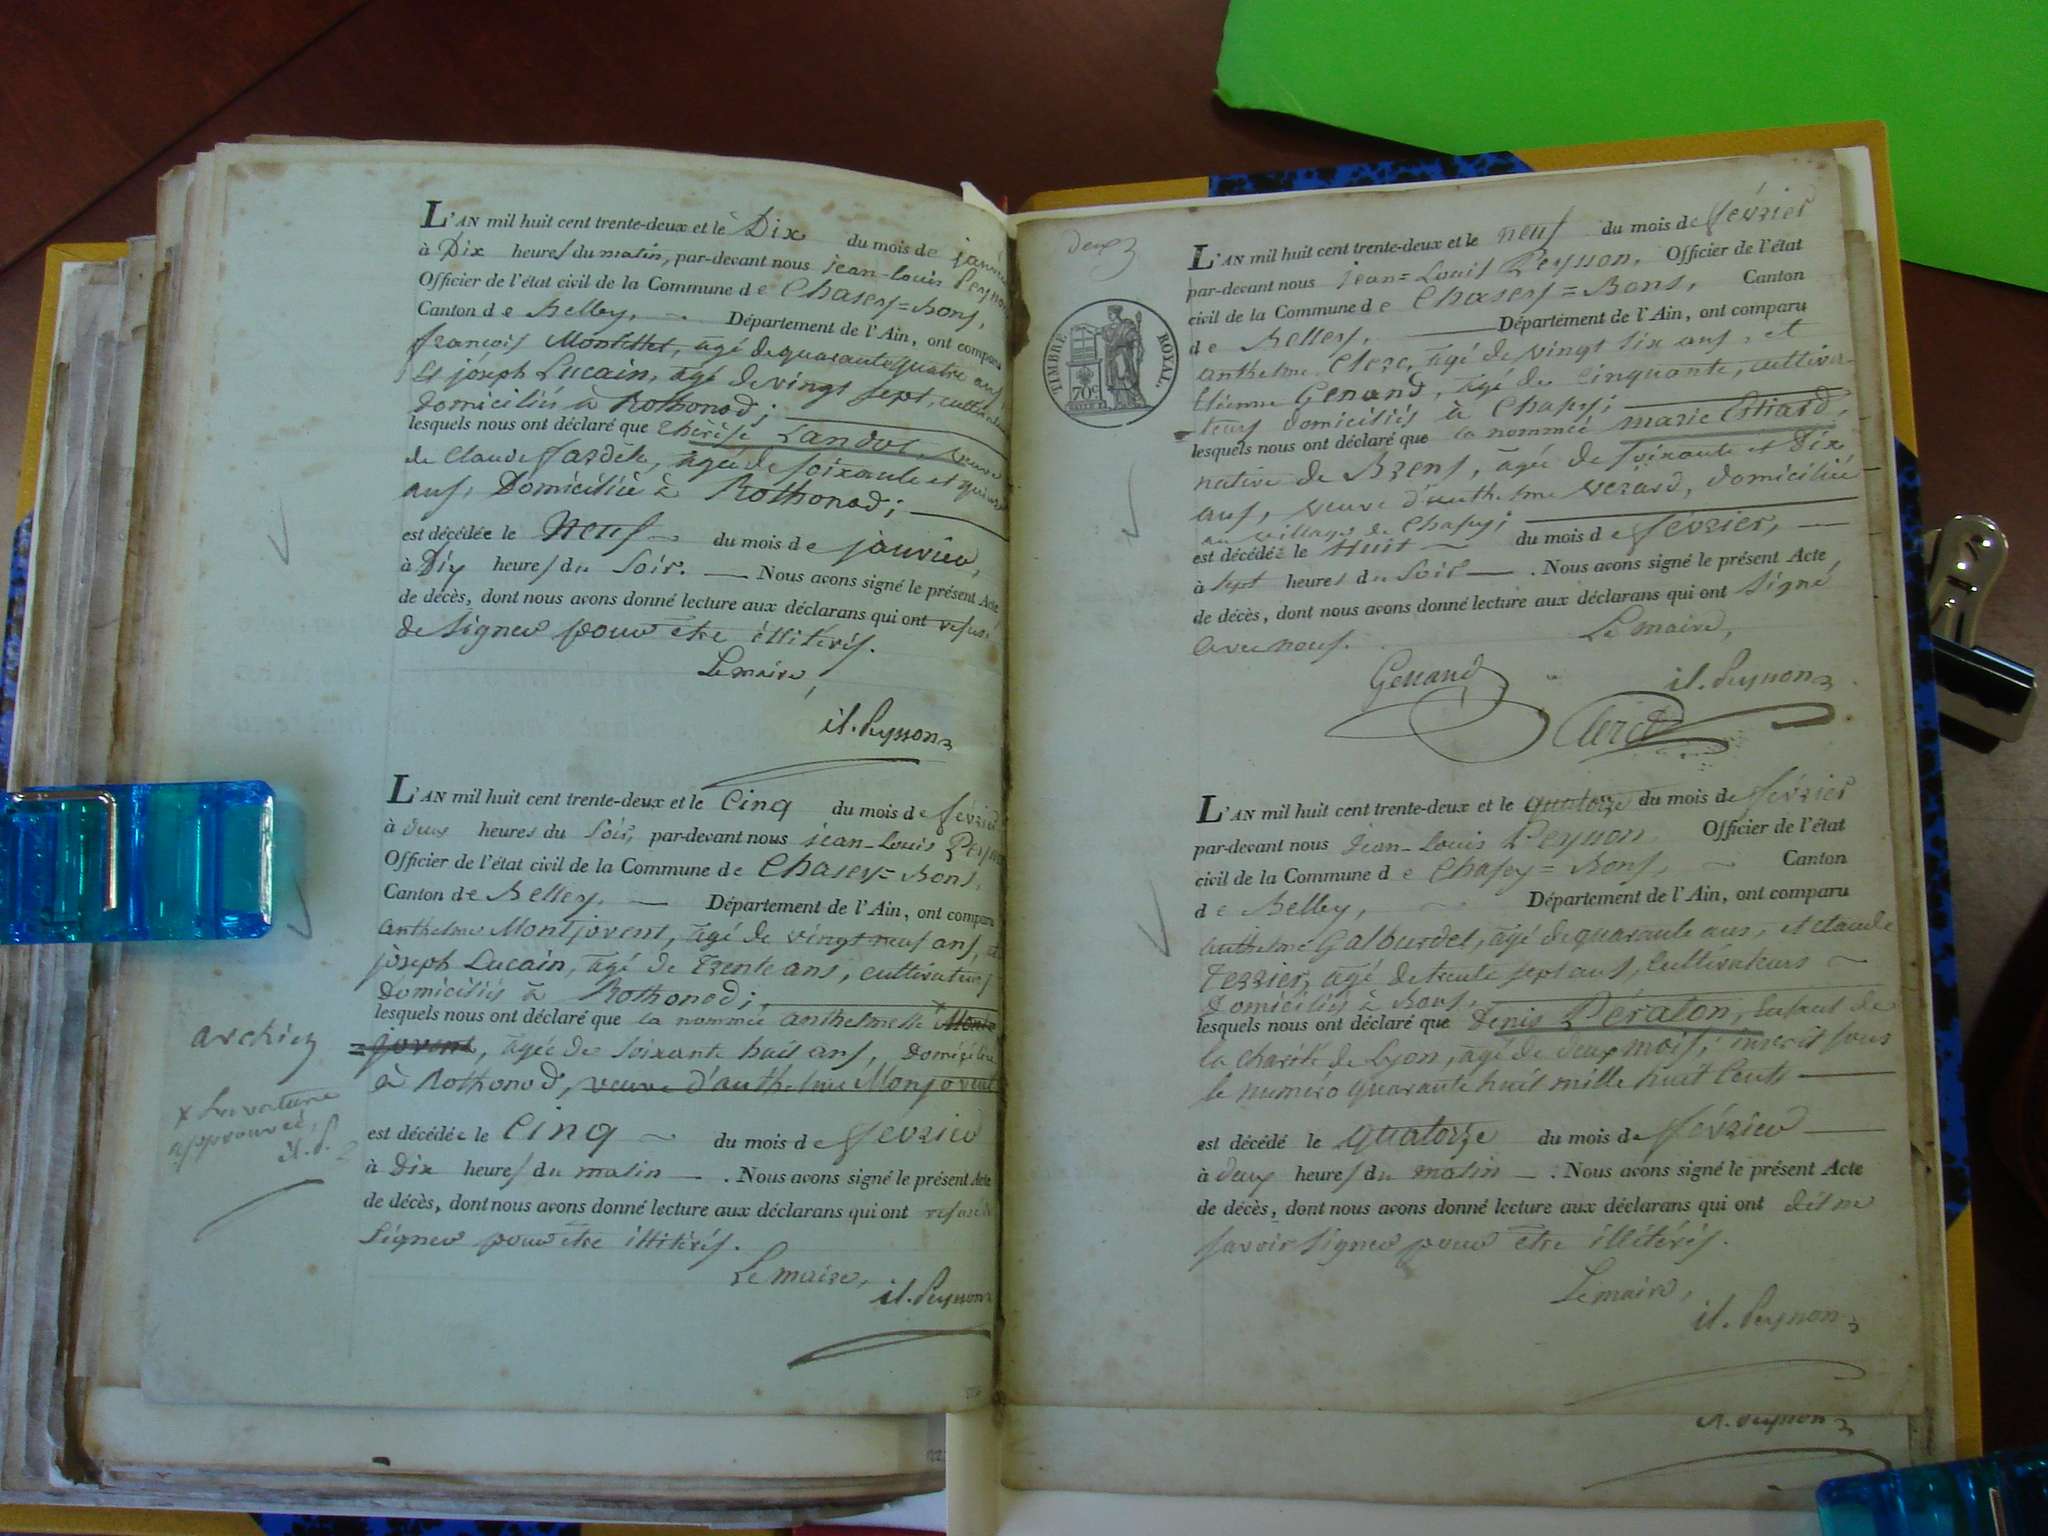 L'AN mil huit cent trente-deux et le Dix du mois de janvier
à Dix heures du matin, par-devant nous jean-Louis Peysson
Officier de l'état civil de la Commune de Chasey=Bons,
Canton de Belley, Département de l'Ain, ont comparu
françois Montillet, agé de quarante quatre ans
Et joseph Lucain, agé de vingt sept, cultivateurs
domiciliés à Rothonod;
lesquels nous ont déclaré que thérèse Landoz, veuve
de Claude Jardet, agée de soixante et quinze
ans, Domiciliée à Rothonod;
est décédée le Neuf du mois de janvier,
à Dix heures du Soir. Nous avons signé le présent Acte
de décès, dont nous avons donné lecture aux déclarans qui ont refusé
de Signer pour être illitérés.
Le maire,
jl. Peysson
L'AN mil huit cent trente-deux et le Cinq du mois de février
à deux heures du Soir, par-devant nous jean-Louis Peysson
Officier de l'état civil de la Commune de Chasey=Bons,
Canton de Belley, Département de l'Ain, ont comparu
anthelme Montjovent, agé de vingt neuf ans, et
joseph Lucain, agé de trente ans, cultivateurs
domiciliés à Rothonod;
lesquels nous ont déclaré que la nommée anthelmette Mont
=jovent, agée de soixante huit ans, domiciliée
à Rothonod, veuve d'anthelme Monjovent
archiez
x Surrature
approuvée,
jl. P.
est décédée le Cinq du mois de février
à Dix heures du matin. Nous avons signé le présent Acte
de décès, dont nous avons donné lecture aux déclarans qui ont refusé de
Signer pour être illitérés.
Le maire,
jl. Peysson
deux
TIMBRE ROYAL.
70c.
L'AN mil huit cent trente-deux et le neuf du mois de février
par-devant nous jean=Louis Peysson, Officier de l'état
civil de la Commune de Chasey=Bons, Canton
de Belley, Département de l'Ain, ont comparu
anthelme Clerc, agé de vingt six ans, et
Etienne Genand, agé de cinquante, cultiva-
teurs domiciliés à Chasey;
lesquels nous ont déclaré que la nommée marie Estiard,
native de Brens, agée de soixante et Dix
ans, veuve d'anthelme Verard, domiciliée
au village de Chasey;
est décédée le Huit du mois de février,
à sept heures du Soir. Nous avons signé le présent Acte
de décès, dont nous avons donné lecture aux déclarans qui ont Signé
avec nous. Le maire,
Genand jl. Peysson
Clerc
L'AN mil huit cent trente-deux et le quatorze du mois de février
par-devant nous Jean-Louis Peysson Officier de l'état
civil de la Commune de Chasey=Bons, Canton
de Belley, Département de l'Ain, ont comparu
anthelme Galburdet, agé de quarante ans, et claude
Terrier, agé de trente sept ans, Cultivateurs
Domiciliés à Bons,
lesquels nous ont déclaré que Denis Pératon, Enfant de
la charité de Lyon, agé de deux mois, inscrit sous
le numéro quarante huit mille huit Cents
est décédé le quatorze du mois de février
à deux heures du matin. Nous avons signé le présent Acte
de décès, dont nous avons donné lecture aux déclarans qui ont dit ne
savoir Signer pour être illitérés.
Le maire,
jl. Peysson
jl. Peysson